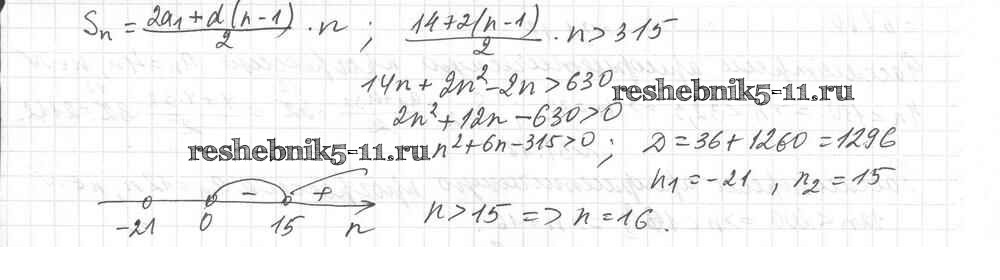 Sn = (2a₁ + d(n-1))/2 · n ; (14+2(n-1))/2 · n > 315
14n + 2n² - 2n > 630
reshebnik5-11.ru
2n² + 12n - 630 > 0
reshebnik5-11.ru
n² + 6n - 315 > 0 ; D = 36 + 1260 = 1296
n₁ = -21 , n₂ = 15
- +
-21 0 15 n
n > 15 => n = 16.